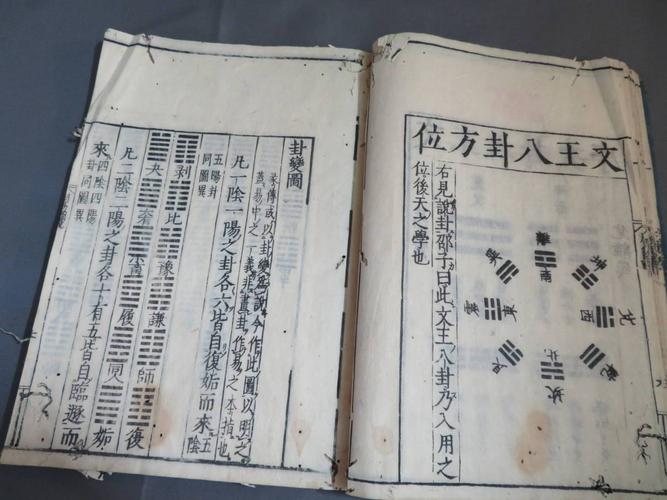 文王八卦方位
離
南
坤
兌
西
乾
坎
北
艮
震
東
巽
右見說卦邵子曰此文王八卦乃入用之
位後天之學也
卦變圖
彖傳或以卦變爲說今作此圖以明之
蓋易中之一義非畫卦作易之本指也
凡一陰一陽之卦各六皆自復姤而來五陰
五陽卦
同圖異
剝比豫謙師復
夬大有小畜履同人姤
凡二陰二陽之卦各十有五皆自臨遯而
來四陰四陽
卦同圖異